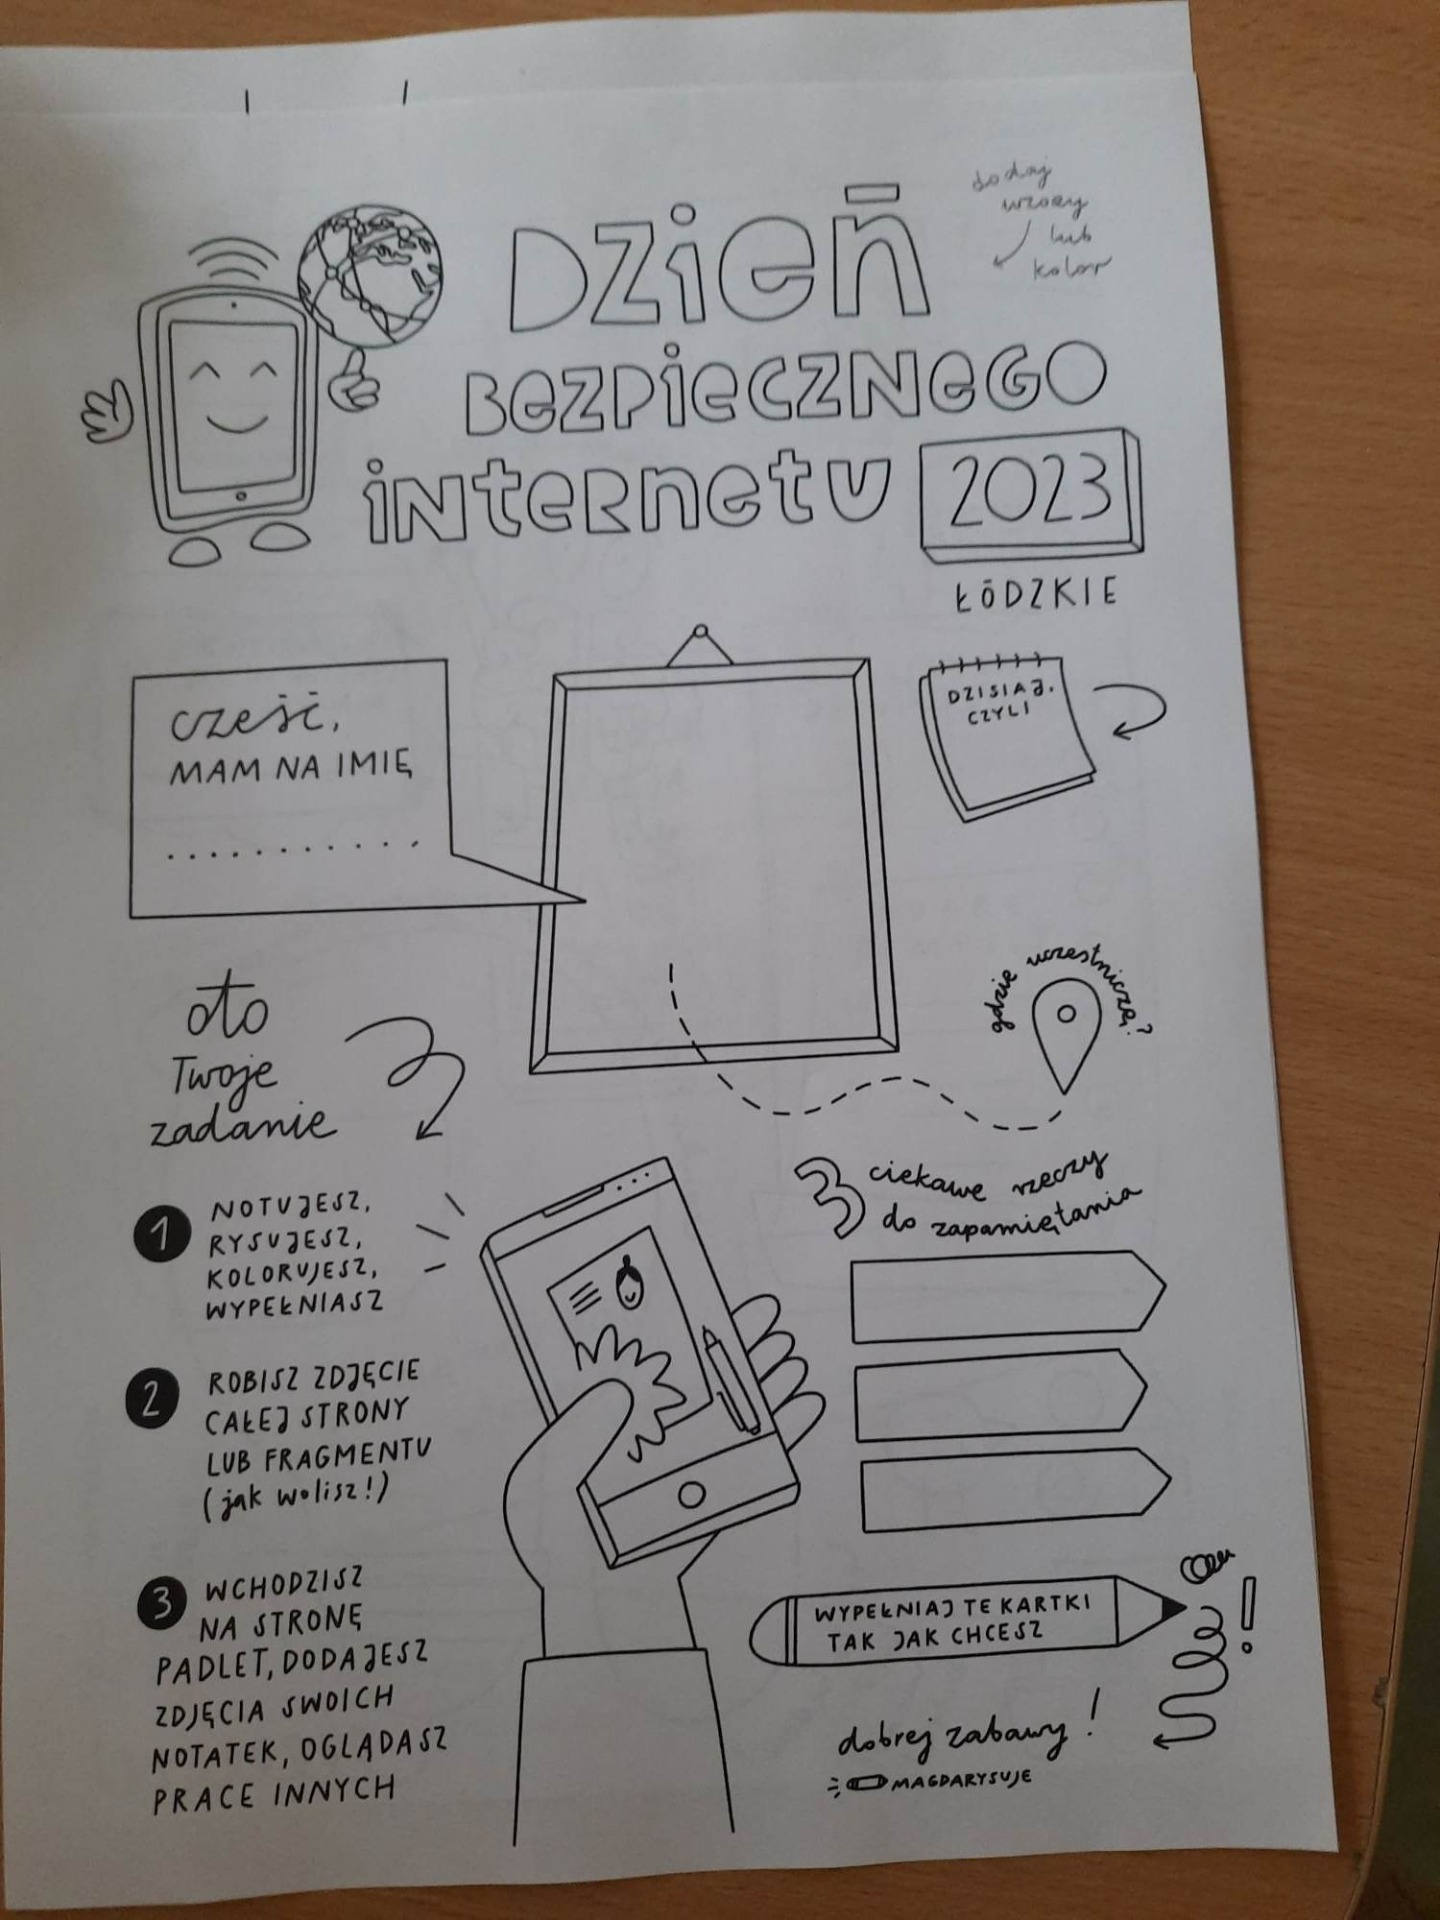 dodaj
wzory
lub
kolor
Dzień
BEZPIECZNEGO
INTERNETU
2023
ŁÓDZKIE
cześć,
MAM NA IMIĘ
...........
DZISIAJ,
CZYLI
gdzie uczestniczę?
oto
Twoje
zadanie
1 NOTUJESZ,
RYSUJESZ,
KOLORUJESZ,
WYPEŁNIASZ
2 ROBISZ ZDJĘCIE
CAŁEJ STRONY
LUB FRAGMENTU
(jak wolisz!)
3 WCHODZISZ
NA STRONĘ
PADLET, DODAJESZ
ZDJĘCIA SWOICH
NOTATEK, OGLĄDASZ
PRACE INNYCH
3 ciekawe rzeczy
do zapamiętania
WYPEŁNIAJ TE KARTKI
TAK JAK CHCESZ
!
dobrej zabawy!
MAGDARYSUJE